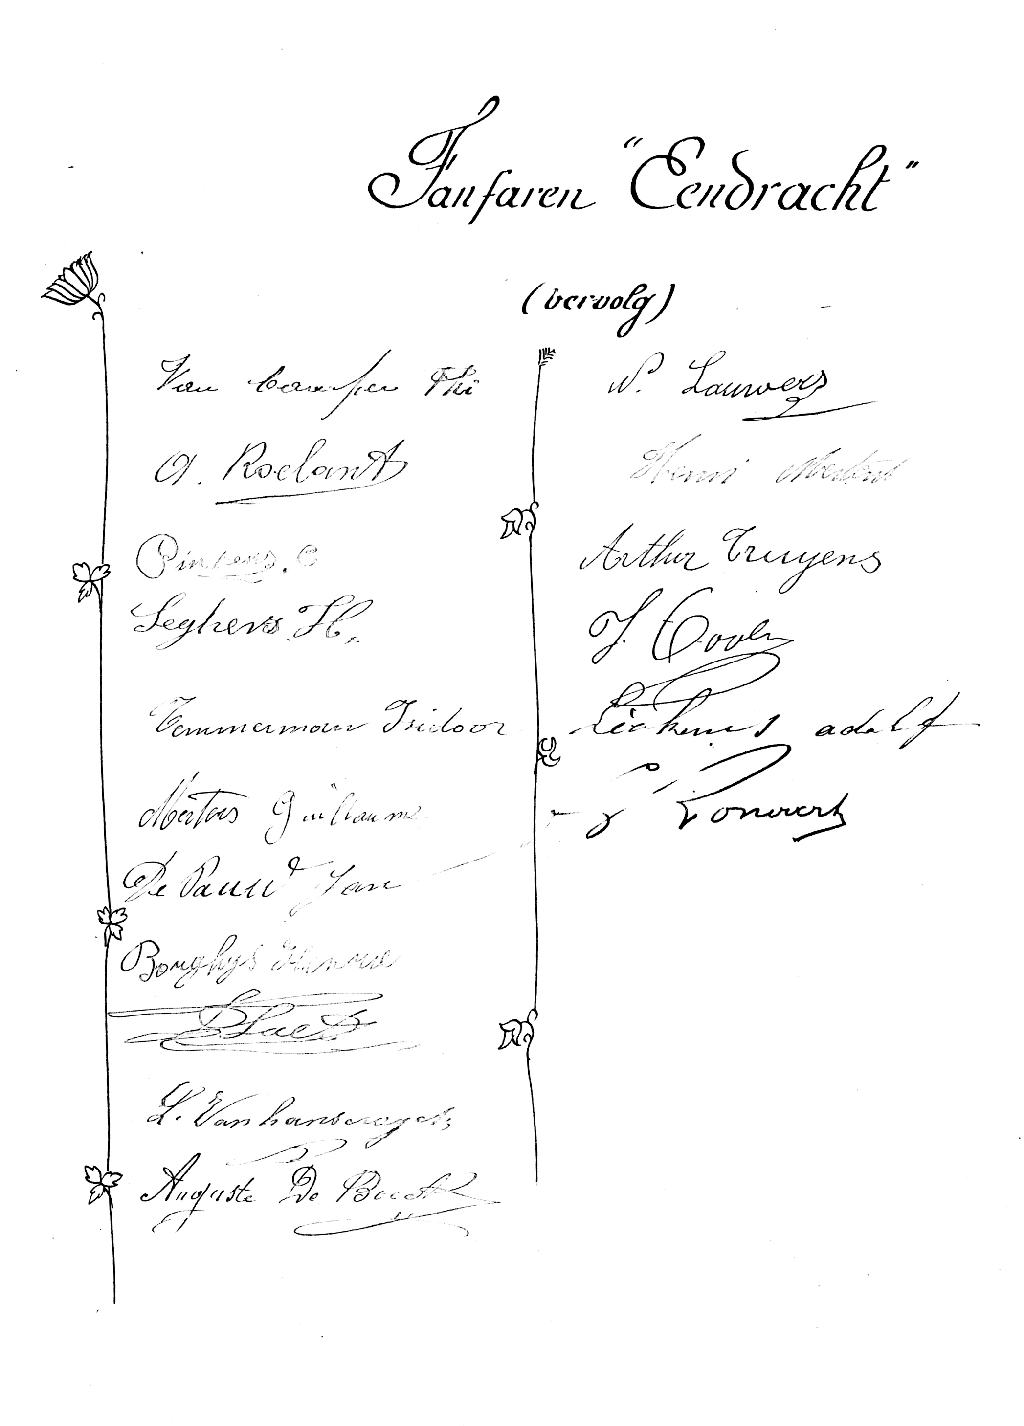 Fanfaren "Eendracht"
(vervolg)
Van Campen Thi
A. Roelant
Pinxens. C
Seghers H.
Temmerman Isidoor
Mertens Guillaume
De Pauw Jan
Borghys
L. Vanhanseragets
Auguste De Boeck
W. Lauwers
Henri Mertens
Arthur Truyens
J. Cools
adolf